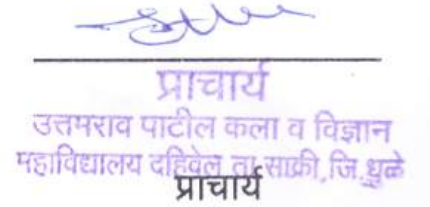 प्राचार्य
उत्तमराव पाटील कला व विज्ञान
महाविद्यालय दहिवेल ता.साक्री,जि.धुळे
प्राचार्य